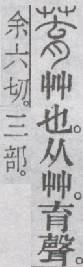 艸也。从艸。育聲。
余六切。三部。